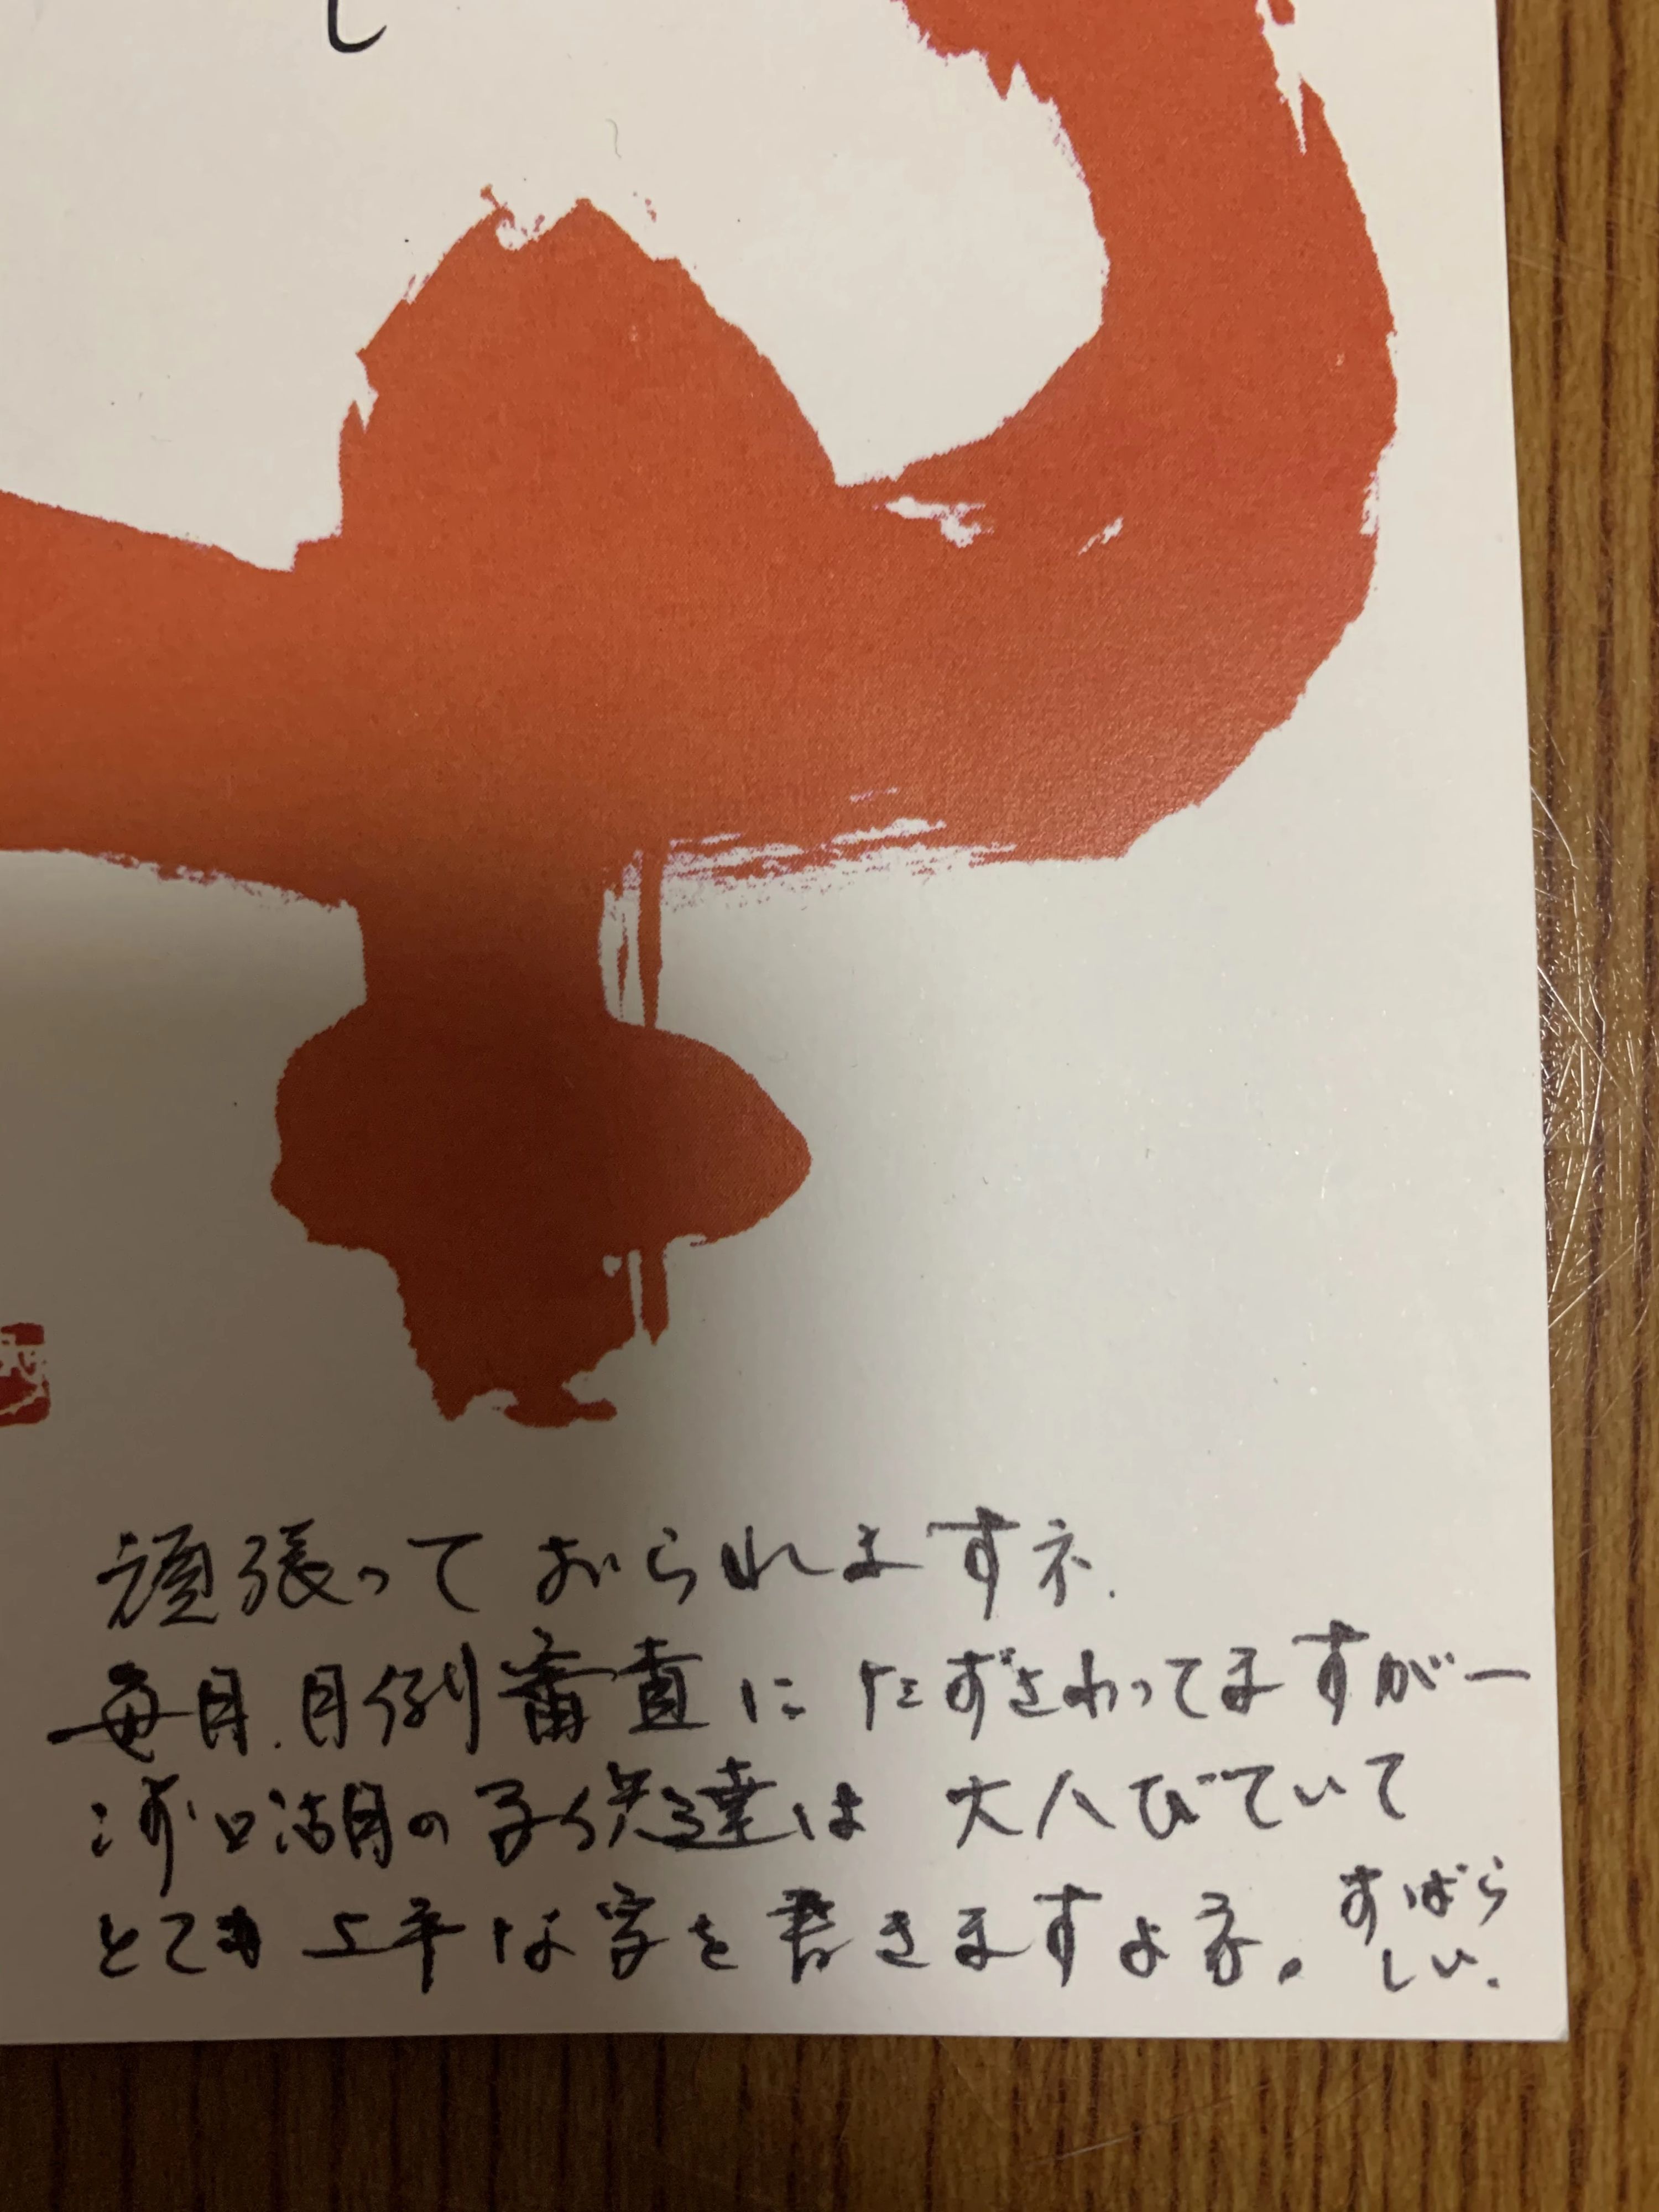 し
頑張っておられますネ.
毎月.月例審査にたずさわってますがー
河口湖の子供達は大人びていて
とても上手な字を書きますよネ。すばら
しい.